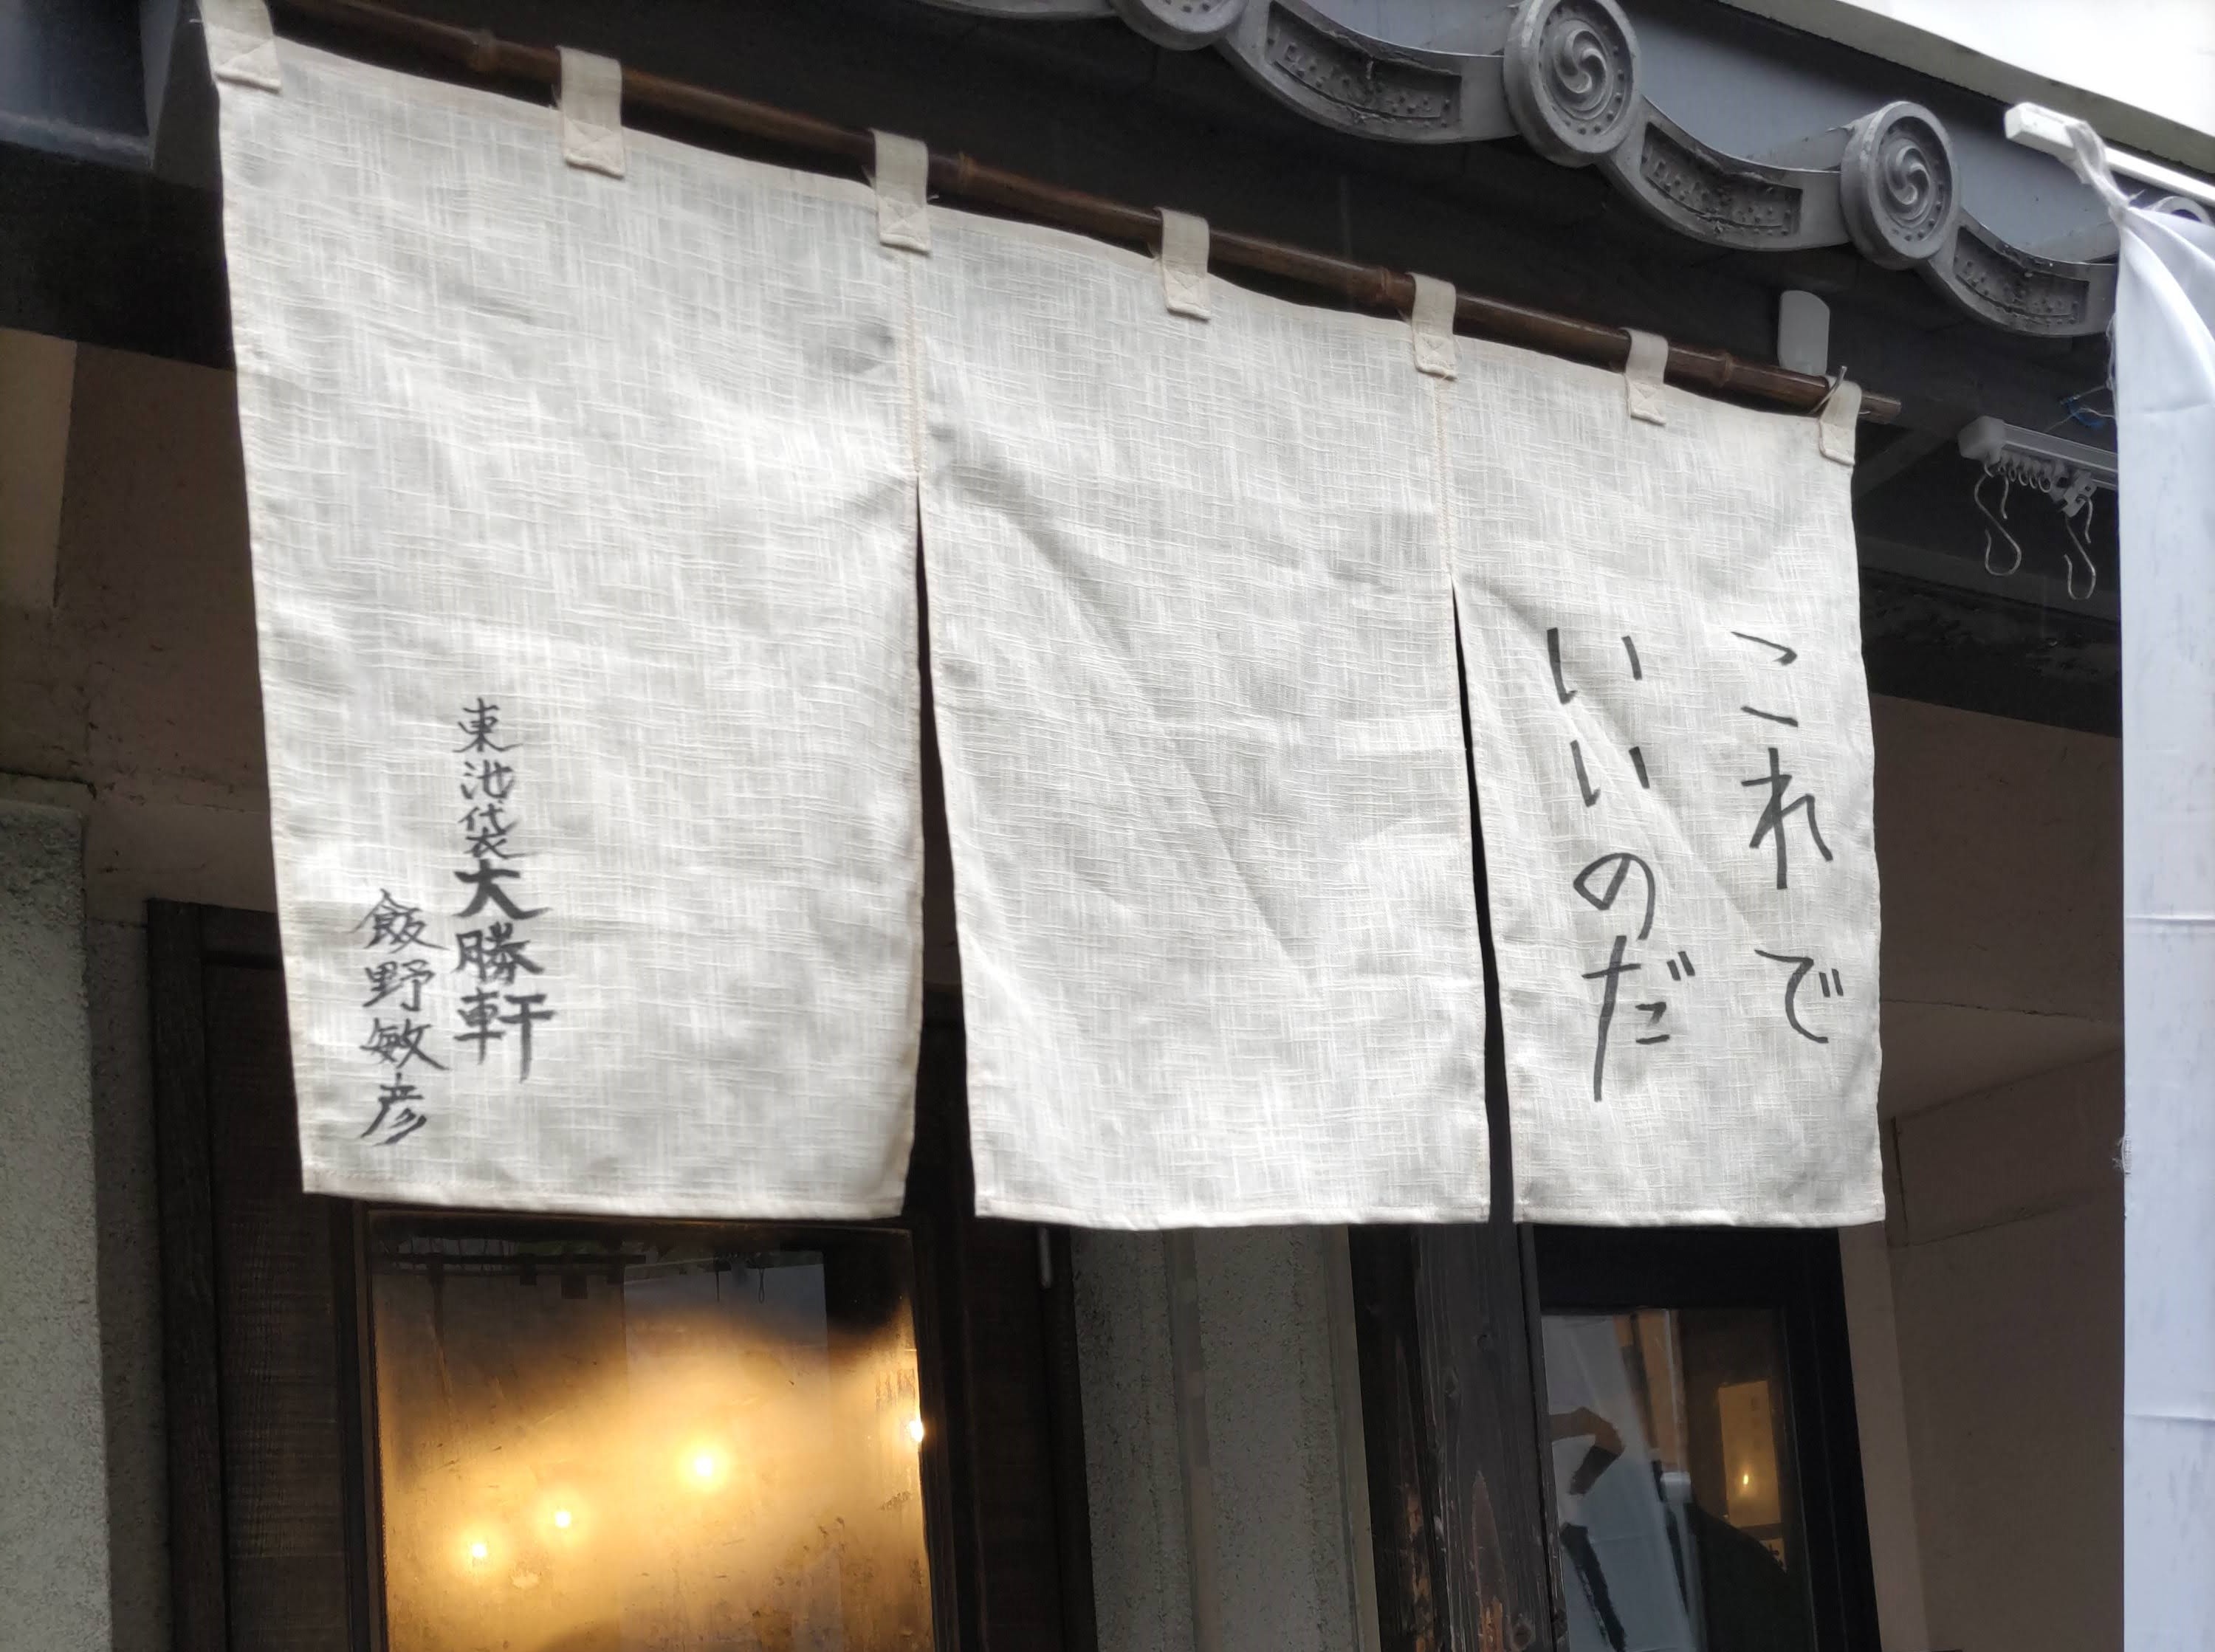 これで
いいのだ
東池袋大勝軒
飯野敏彦